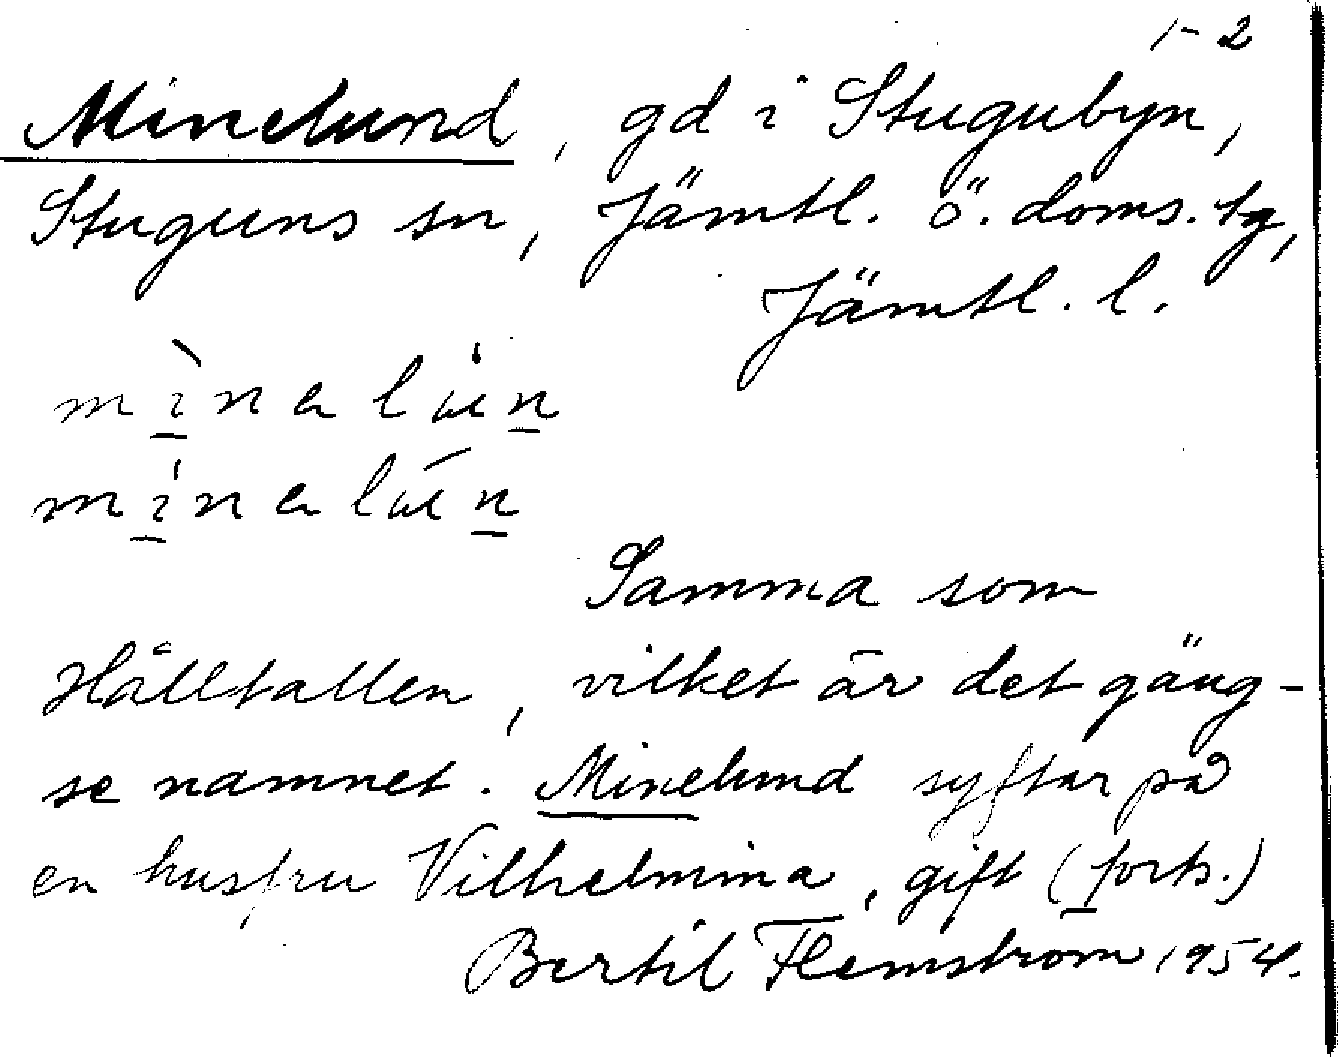 1-2
Minelund, gd i Stugubyn,
Stuguns sn, Jämtl. ö. doms. tg,
Jämtl. l.
Samma som
Hålltallen, vilket är det gäng-
se namnet. Minelund syftar på
en husfru Vilhelmina, gift (forts.)
Bertil Flemström 1954.